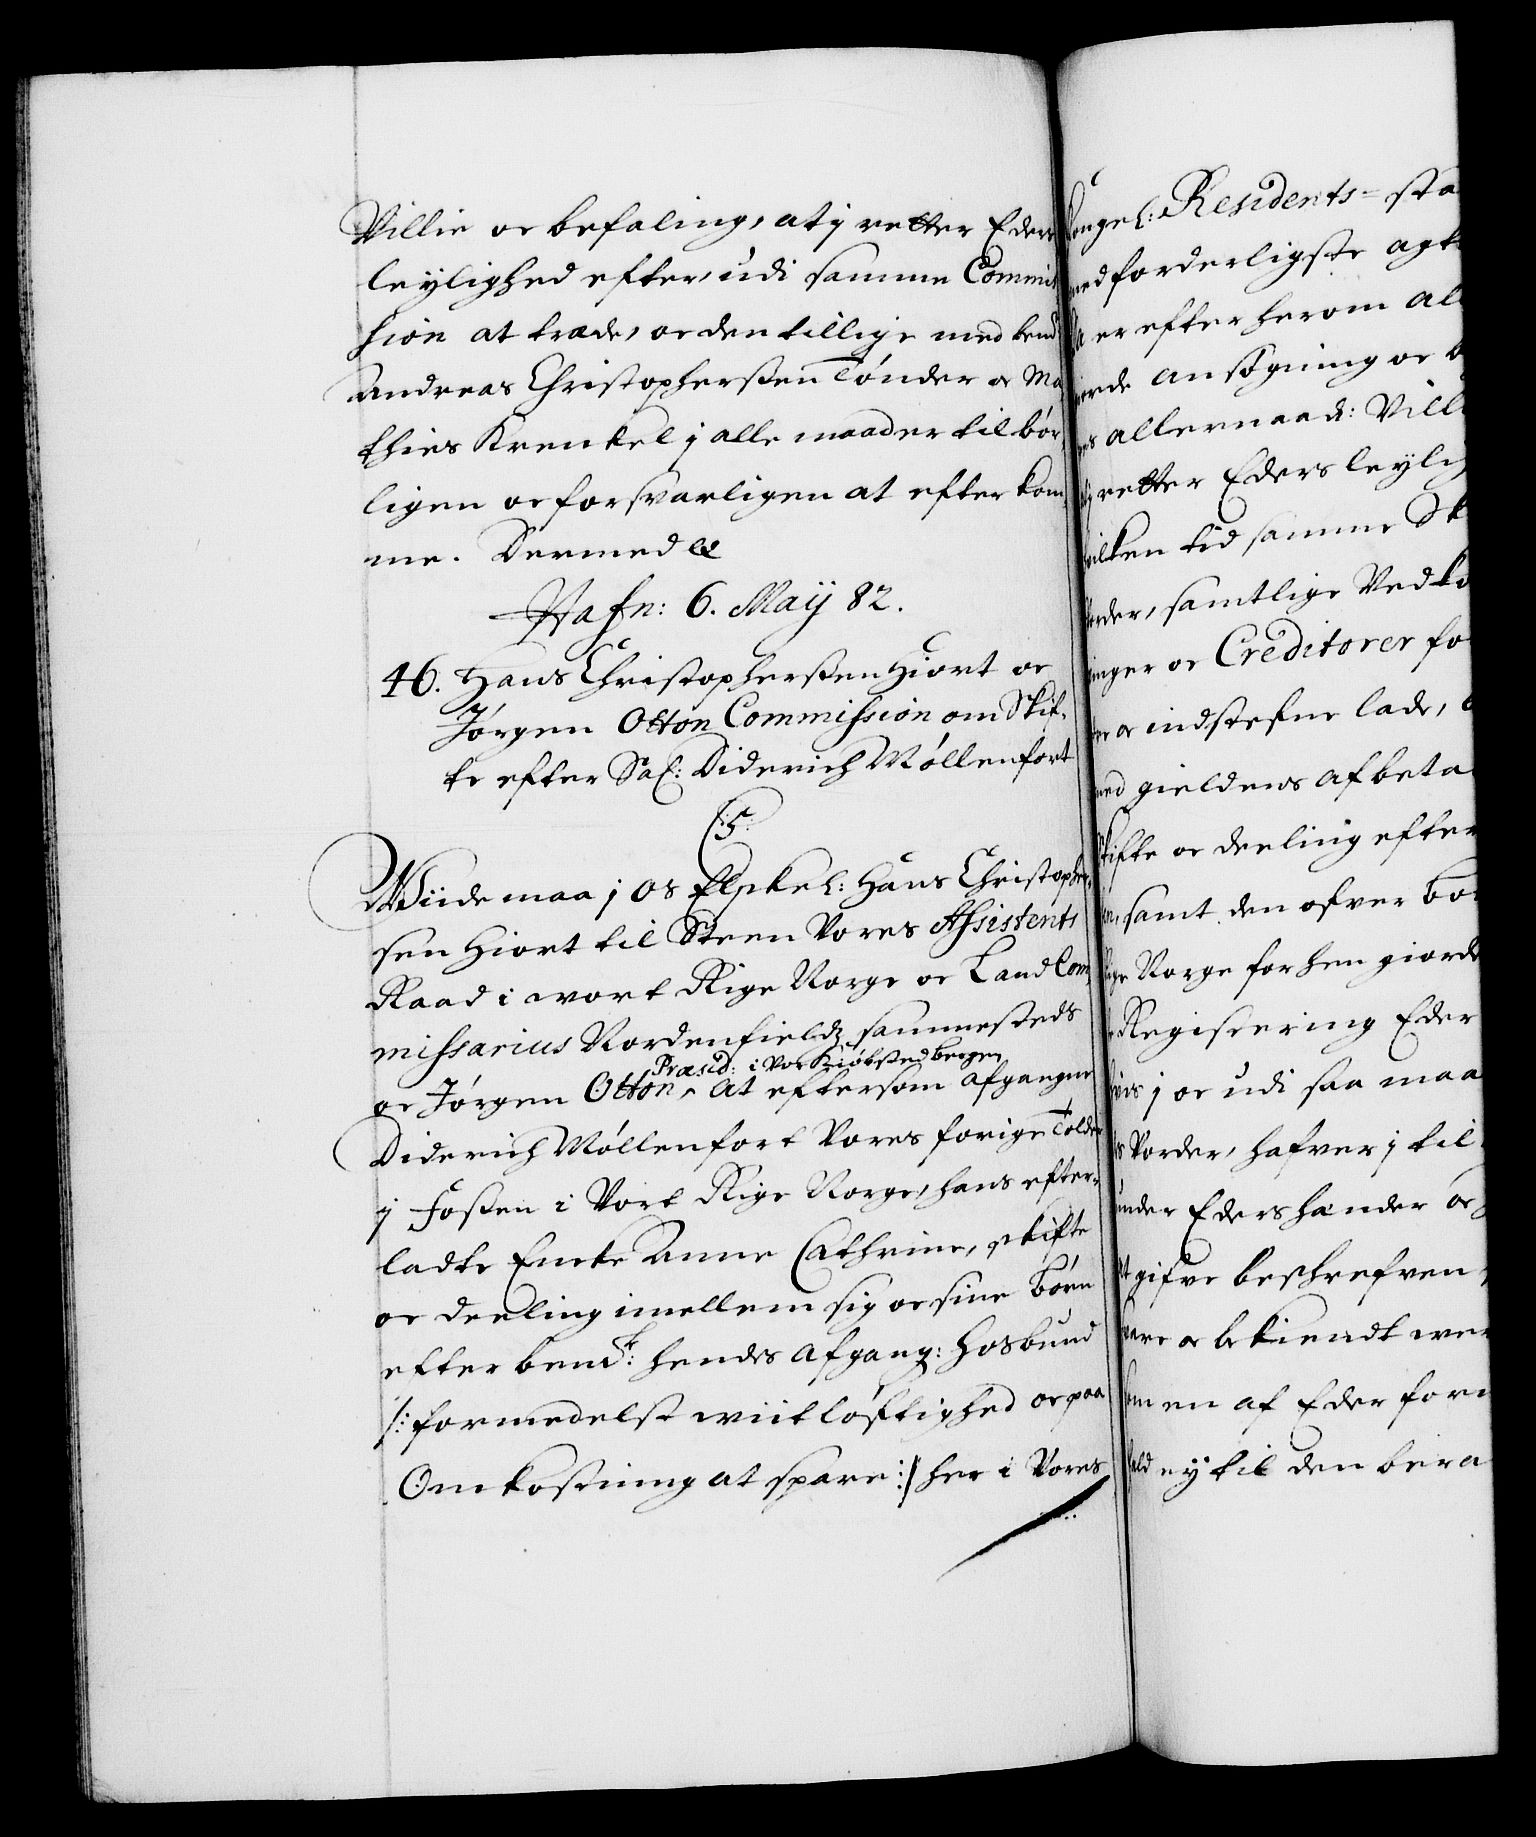 Villie oc befaling, at j retter Eders
leylighed efter, udi samme Commis
hion at træde, oc den tillige med bend
Andreas Christophersen Tønder oc Ma
thies Krenkel j alle maader til bør,
ligen oc forsvarligen at efterkom,
me. Dermed &
Hafn: 6. Maij 82.
46. Hans Christophersen Hiort oc
Jørgen Otton Commission om Skif,
te efter Sal: Diderich Møllenfort
C:5:
Wiide maa j os Elskel: Hans Christopher,
sen Hiort til Steen Vores Assistents
Raad i wort Rige Norge oc Land Com,
missarius Nordenfieldz sammesteds
Præsid: i Vor Kiøbsted bergen
oc Jørgen Otton, at eftersom afgangne
Diderich Møllenfort Vores forige Tolder
j Fossen i Vort Rige Norge, hans efter,
ladte Encke Anne Cathrine, skifte
oc deeling imellem sig oc sine børn
efter bemt: hendes afgang: Hosbund
/: formedelst wiitløftighed oc paa
Omkostning at spare :/ her i Vores
kongel: Residents- sta
med forderligste agt
er efter herom al
giorde ansøgning oc b
allernaad: Vill
retter Eders leylig
hvilken tid samme Sk
vorder, samtlige Vedko
inger oc Creditorer fo
oc indstefne lade,
med gieldens afbeta
skifte oc deeling efter
samt den ofver bo
Norge forhen giord
Registering Eder
j oc udi saa maa
Vorder, hafver j til
under Eders hænder oc
gifve beschrefven,
vare oc bekiendt wer
en af Eder form
ey til den bera